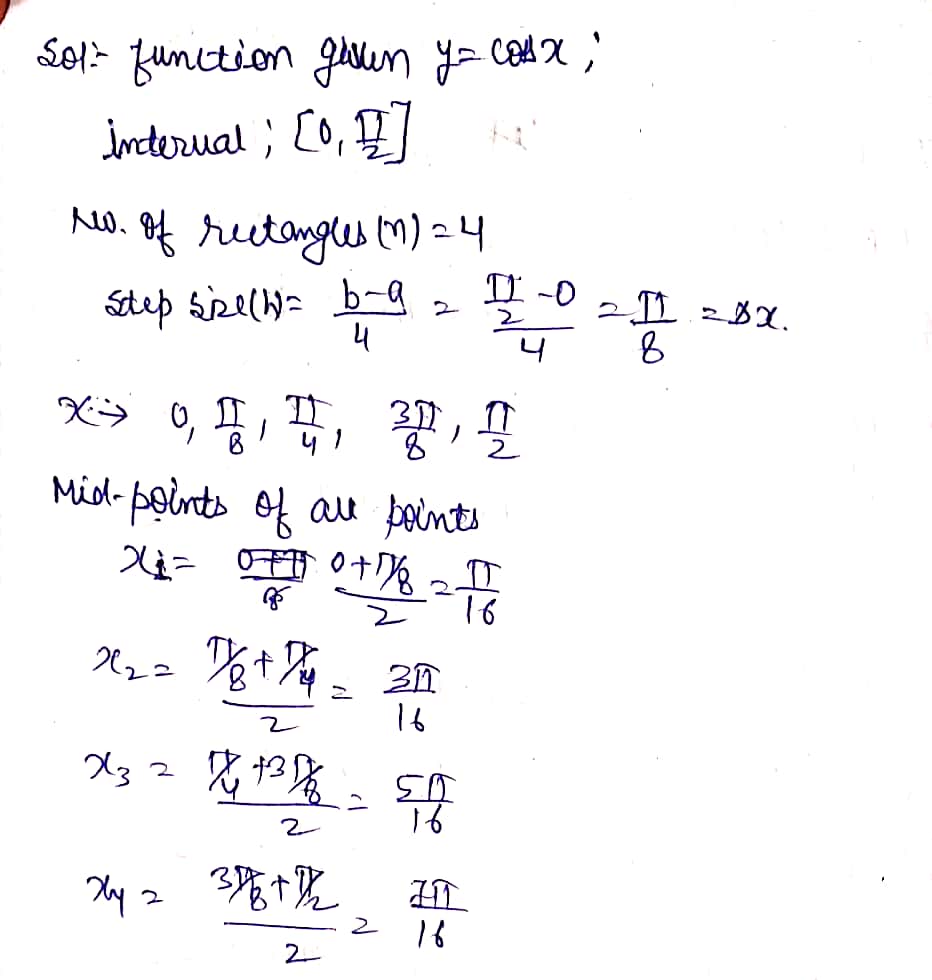 Sol:- function given y = cosx ;
interval ; [0, π/2]
No. of rectangles (n) = 4
Step size(h) = (b-a)/4 = (π/2 - 0)/4 = π/8 = Δx.
xi → 0, π/8, π/4, 3π/8, π/2
Mid-points of all points
x1 = (0+π/8)/2 = π/16
x2 = (π/8 + π/4)/2 = 3π/16
x3 = (π/4 + 3π/8)/2 = 5π/16
x4 = (3π/8 + π/2)/2 = 7π/16